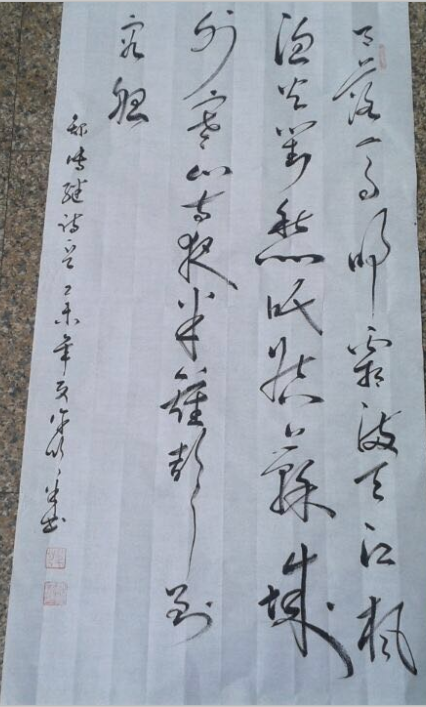 月落烏啼霜滿天江楓
漁火對愁眠姑蘇城
外寒山寺夜半鐘聲到
客船
張繼詩 乙未年夏 書